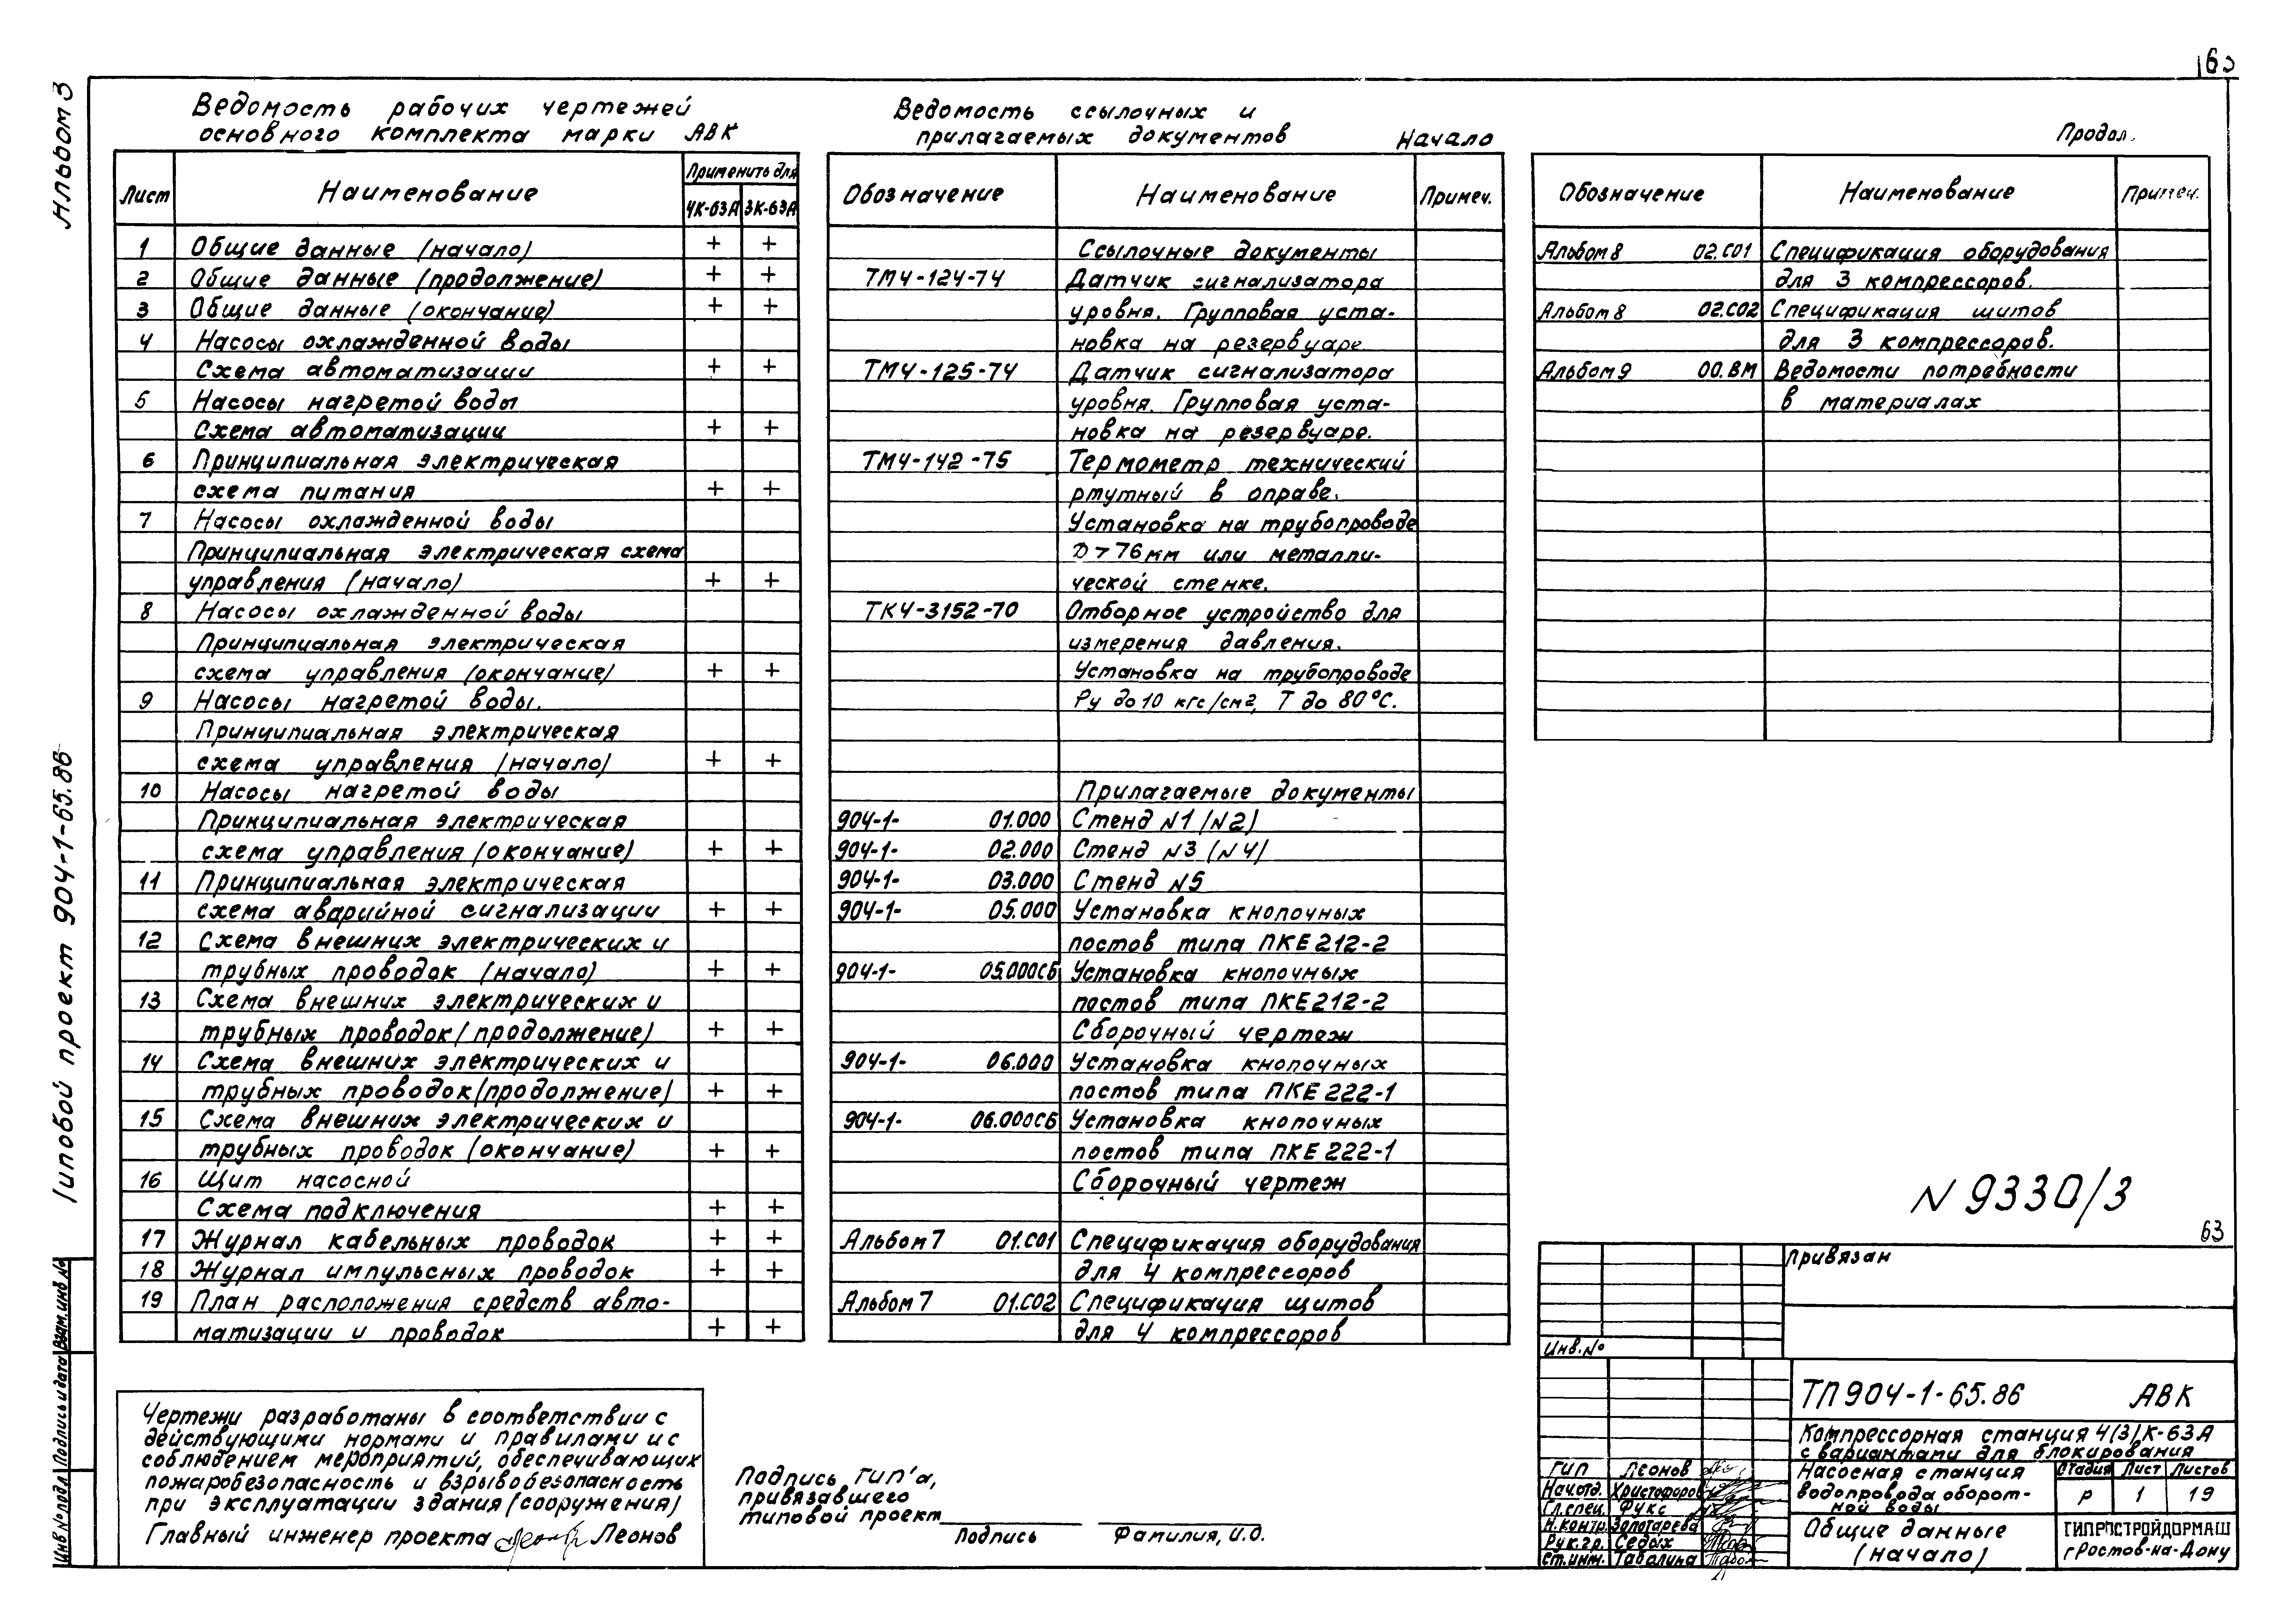 63
Альбом 3
Типовой проект 904-1-65.86
Инв № подл. Подпись и дата Взам. инв №
Ведомость рабочих чертежей
основного комплекта марки АВК
Лист Наименование Применить для
4К-63А 3К-63А
1 Общие данные (начало) + +
2 Общие данные (продолжение) + +
3 Общие данные (окончание) + +
4 Насосы охлажденной воды
Схема автоматизации + +
5 Насосы нагретой воды
Схема автоматизации + +
6 Принципиальная электрическая
схема питания + +
7 Насосы охлажденной воды
Принципиальная электрическая схема
управления (начало) + +
8 Насосы охлажденной воды
Принципиальная электрическая
схема управления (окончание) + +
9 Насосы нагретой воды.
Принципиальная электрическая
схема управления (начало) + +
10 Насосы нагретой воды
Принципиальная электрическая
схема управления (окончание) + +
11 Принципиальная электрическая
схема аварийной сигнализации + +
12 Схема внешних электрических и
трубных проводок (начало) + +
13 Схема внешних электрических и
трубных проводок (продолжение) + +
14 Схема внешних электрических и
трубных проводок (продолжение) + +
15 Схема внешних электрических и
трубных проводок (окончание) + +
16 Щит насосной
Схема подключения + +
17 Журнал кабельных проводок + +
18 Журнал импульсных проводок + +
19 План расположения средств авто-
матизации и проводок + +
Ведомость ссылочных и
прилагаемых документов Начало
Обозначение Наименование Примеч.
Ссылочные документы
ТМ4-124-74 Датчик сигнализатора
уровня. Групповая уста-
новка на резервуаре.
ТМ4-125-74 Датчик сигнализатора
уровня. Групповая уста-
новка на резервуаре.
ТМ4-142-75 Термометр технический
ртутный в оправе.
Установка на трубопроводе
D > 76 мм или металли-
ческой стенке.
ТК4-3152-70 Отборное устройство для
измерения давления.
Установка на трубопроводе
Ру до 10 кгс/см2, Т до 80°С.
Прилагаемые документы
904-1- 01.000 Стенд N1 (N2)
904-1- 02.000 Стенд N3 (N4)
904-1- 03.000 Стенд N5
904-1- 05.000 Установка кнопочных
постов типа ПКЕ 212-2
904-1- 05.000СБ Установка кнопочных
постов типа ПКЕ 212-2
Сборочный чертеж
904-1- 06.000 Установка кнопочных
постов типа ПКЕ 222-1
904-1- 06.000СБ Установка кнопочных
постов типа ПКЕ 222-1
Сборочный чертеж
Альбом 7 01.СО1 Спецификация оборудования
для 4 компрессоров
Альбом 7 01.СО2 Спецификация щитов
для 4 компрессоров
Продол.
Обозначение Наименование Примеч.
Альбом 8 02.СО1 Спецификация оборудования
для 3 компрессоров.
Альбом 8 02.СО2 Спецификация щитов
для 3 компрессоров.
Альбом 9 00.ВМ Ведомости потребности
в материалах
N 9330/3
63
Чертежи разработаны в соответствии с
действующими нормами и правилами и с
соблюдением мероприятий, обеспечивающих
пожаробезопасность и взрывобезопасность
при эксплуатации здания (сооружения)
Главный инженер проекта Леонов
Подпись ГИП'а,
привязавшего
типовой проект
Подпись Фамилия, И.О.
Привязан
Инв. №
ТП 904-1-65.86 АВК
Компрессорная станция 4(3)К-63А
с вариантами для блокирования
ГИП Леонов
Нач.отд. Христофоров
Гл.спец. Фукс
Н.контр. Золотарева
Рук.гр. Седых
Ст.инж. Таболина
Насосная станция
водопровода оборот-
ной воды
Стадия Лист Листов
Р 1 19
Общие данные
(начало)
ГИПРОСТРОЙДОРМАШ
г.Ростов-на-Дону